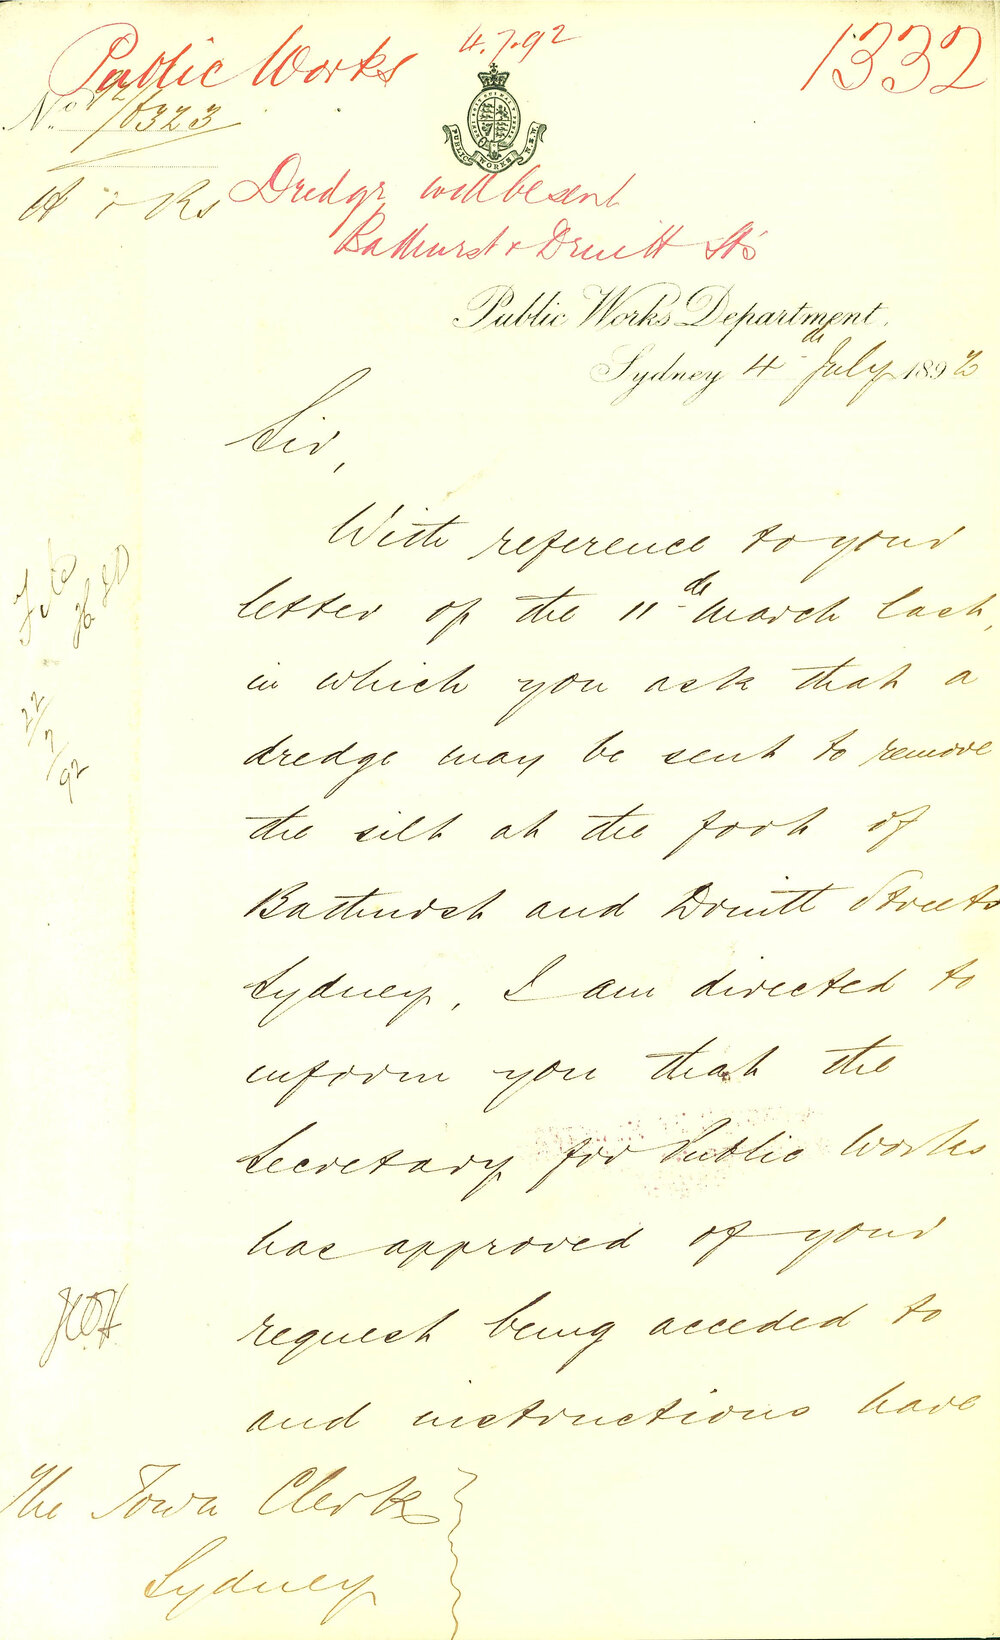 Public Works
4.7.92
1332
No. 92/8323
PUBLIC WORKS N.S.W.
H & Rs
Dredge will be sent
Bathurst & Druitt Sts
Public Works Department,
Sydney 4th July 1892
Sir,
With reference to your
letter of the 11th March last,
in which you ask that a
dredge may be sent to remove
the silt at the foot of
Bathurst and Druitt Streets
Sydney, I am directed to
inform you that the
Secretary for Public Works
has approved of your
request being acceded to
and instructions have
The Town Clerk
Sydney
22/7/92